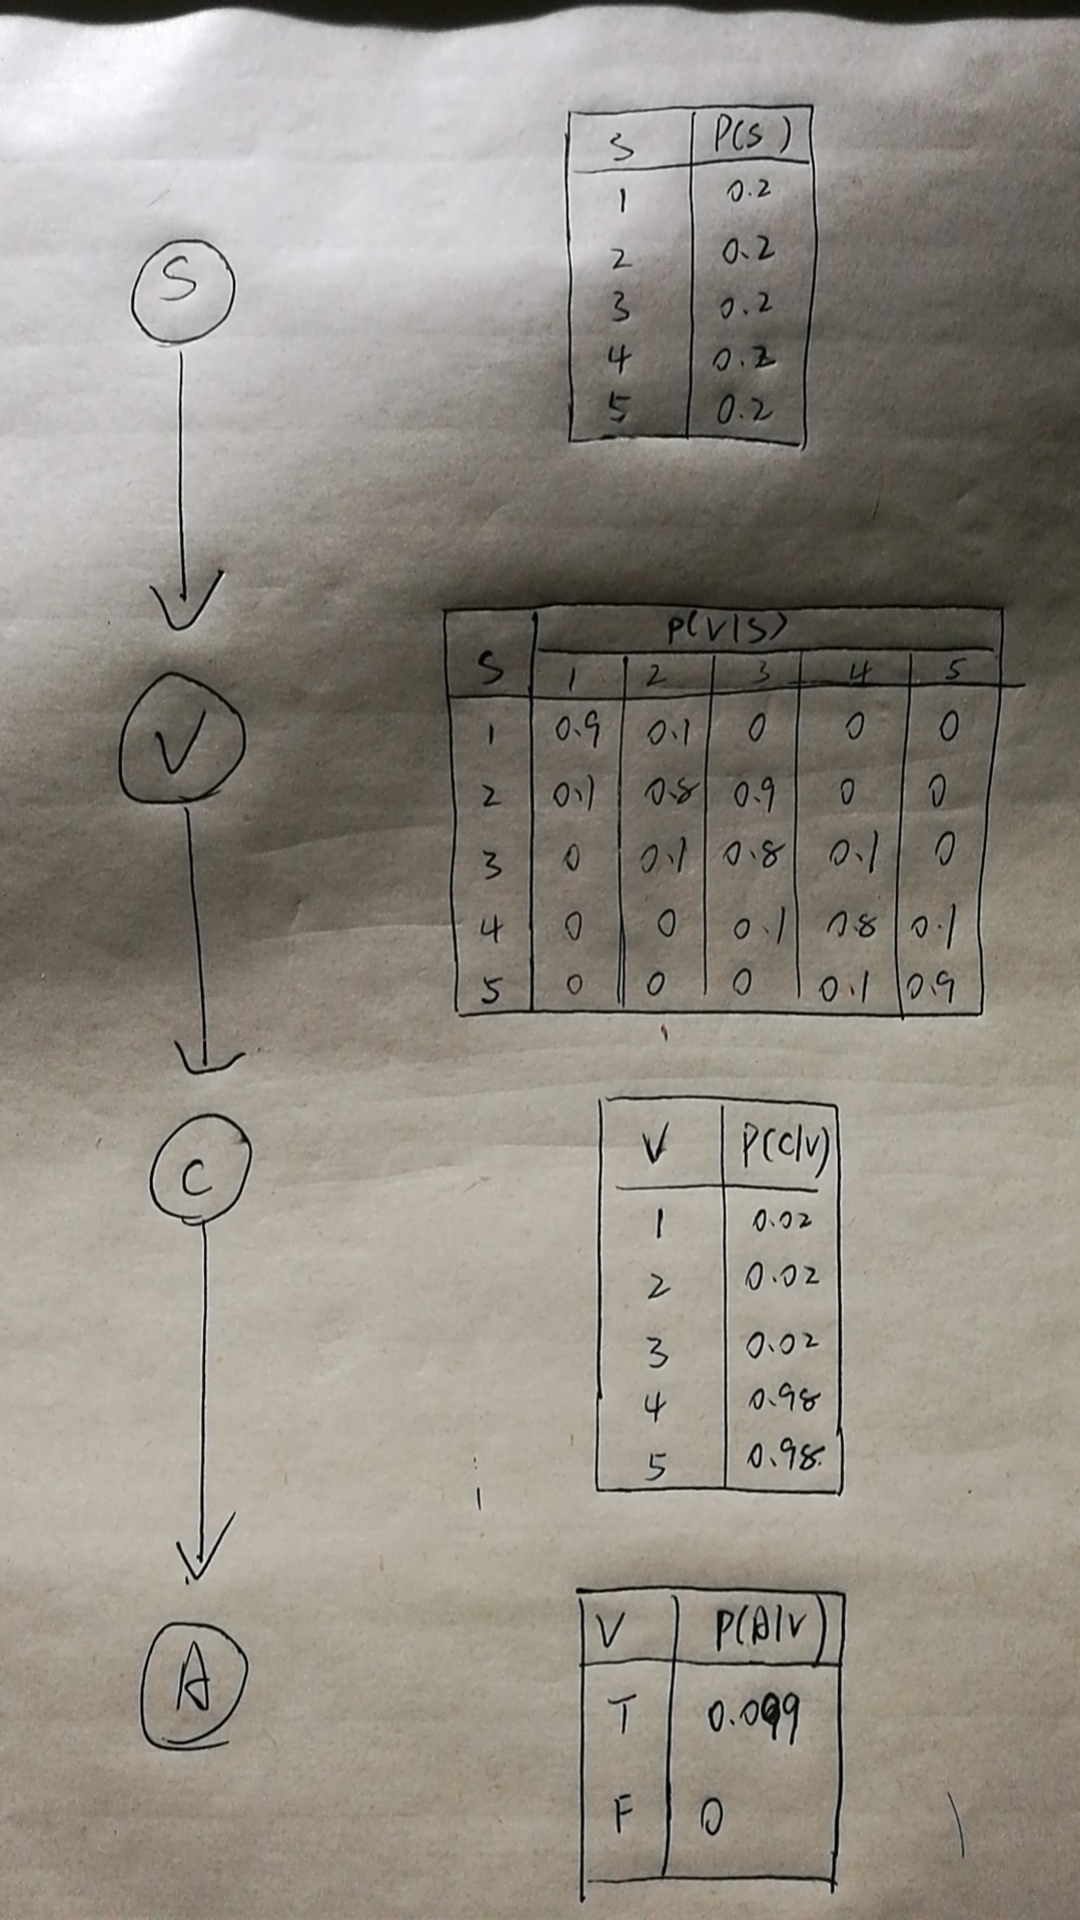 S P(S)
1 0.2
2 0.2
3 0.2
4 0.2
5 0.2
S
P(V|S)
S 1 2 3 4 5
1 0.9 0.1 0 0 0
2 0.1 0.8 0.9 0 0
3 0 0.1 0.8 0.1 0
4 0 0 0.1 0.8 0.1
5 0 0 0 0.1 0.9
V
V P(C|V)
1 0.02
2 0.02
3 0.02
4 0.98
5 0.98
C
V P(A|V)
T 0.099
F 0
A